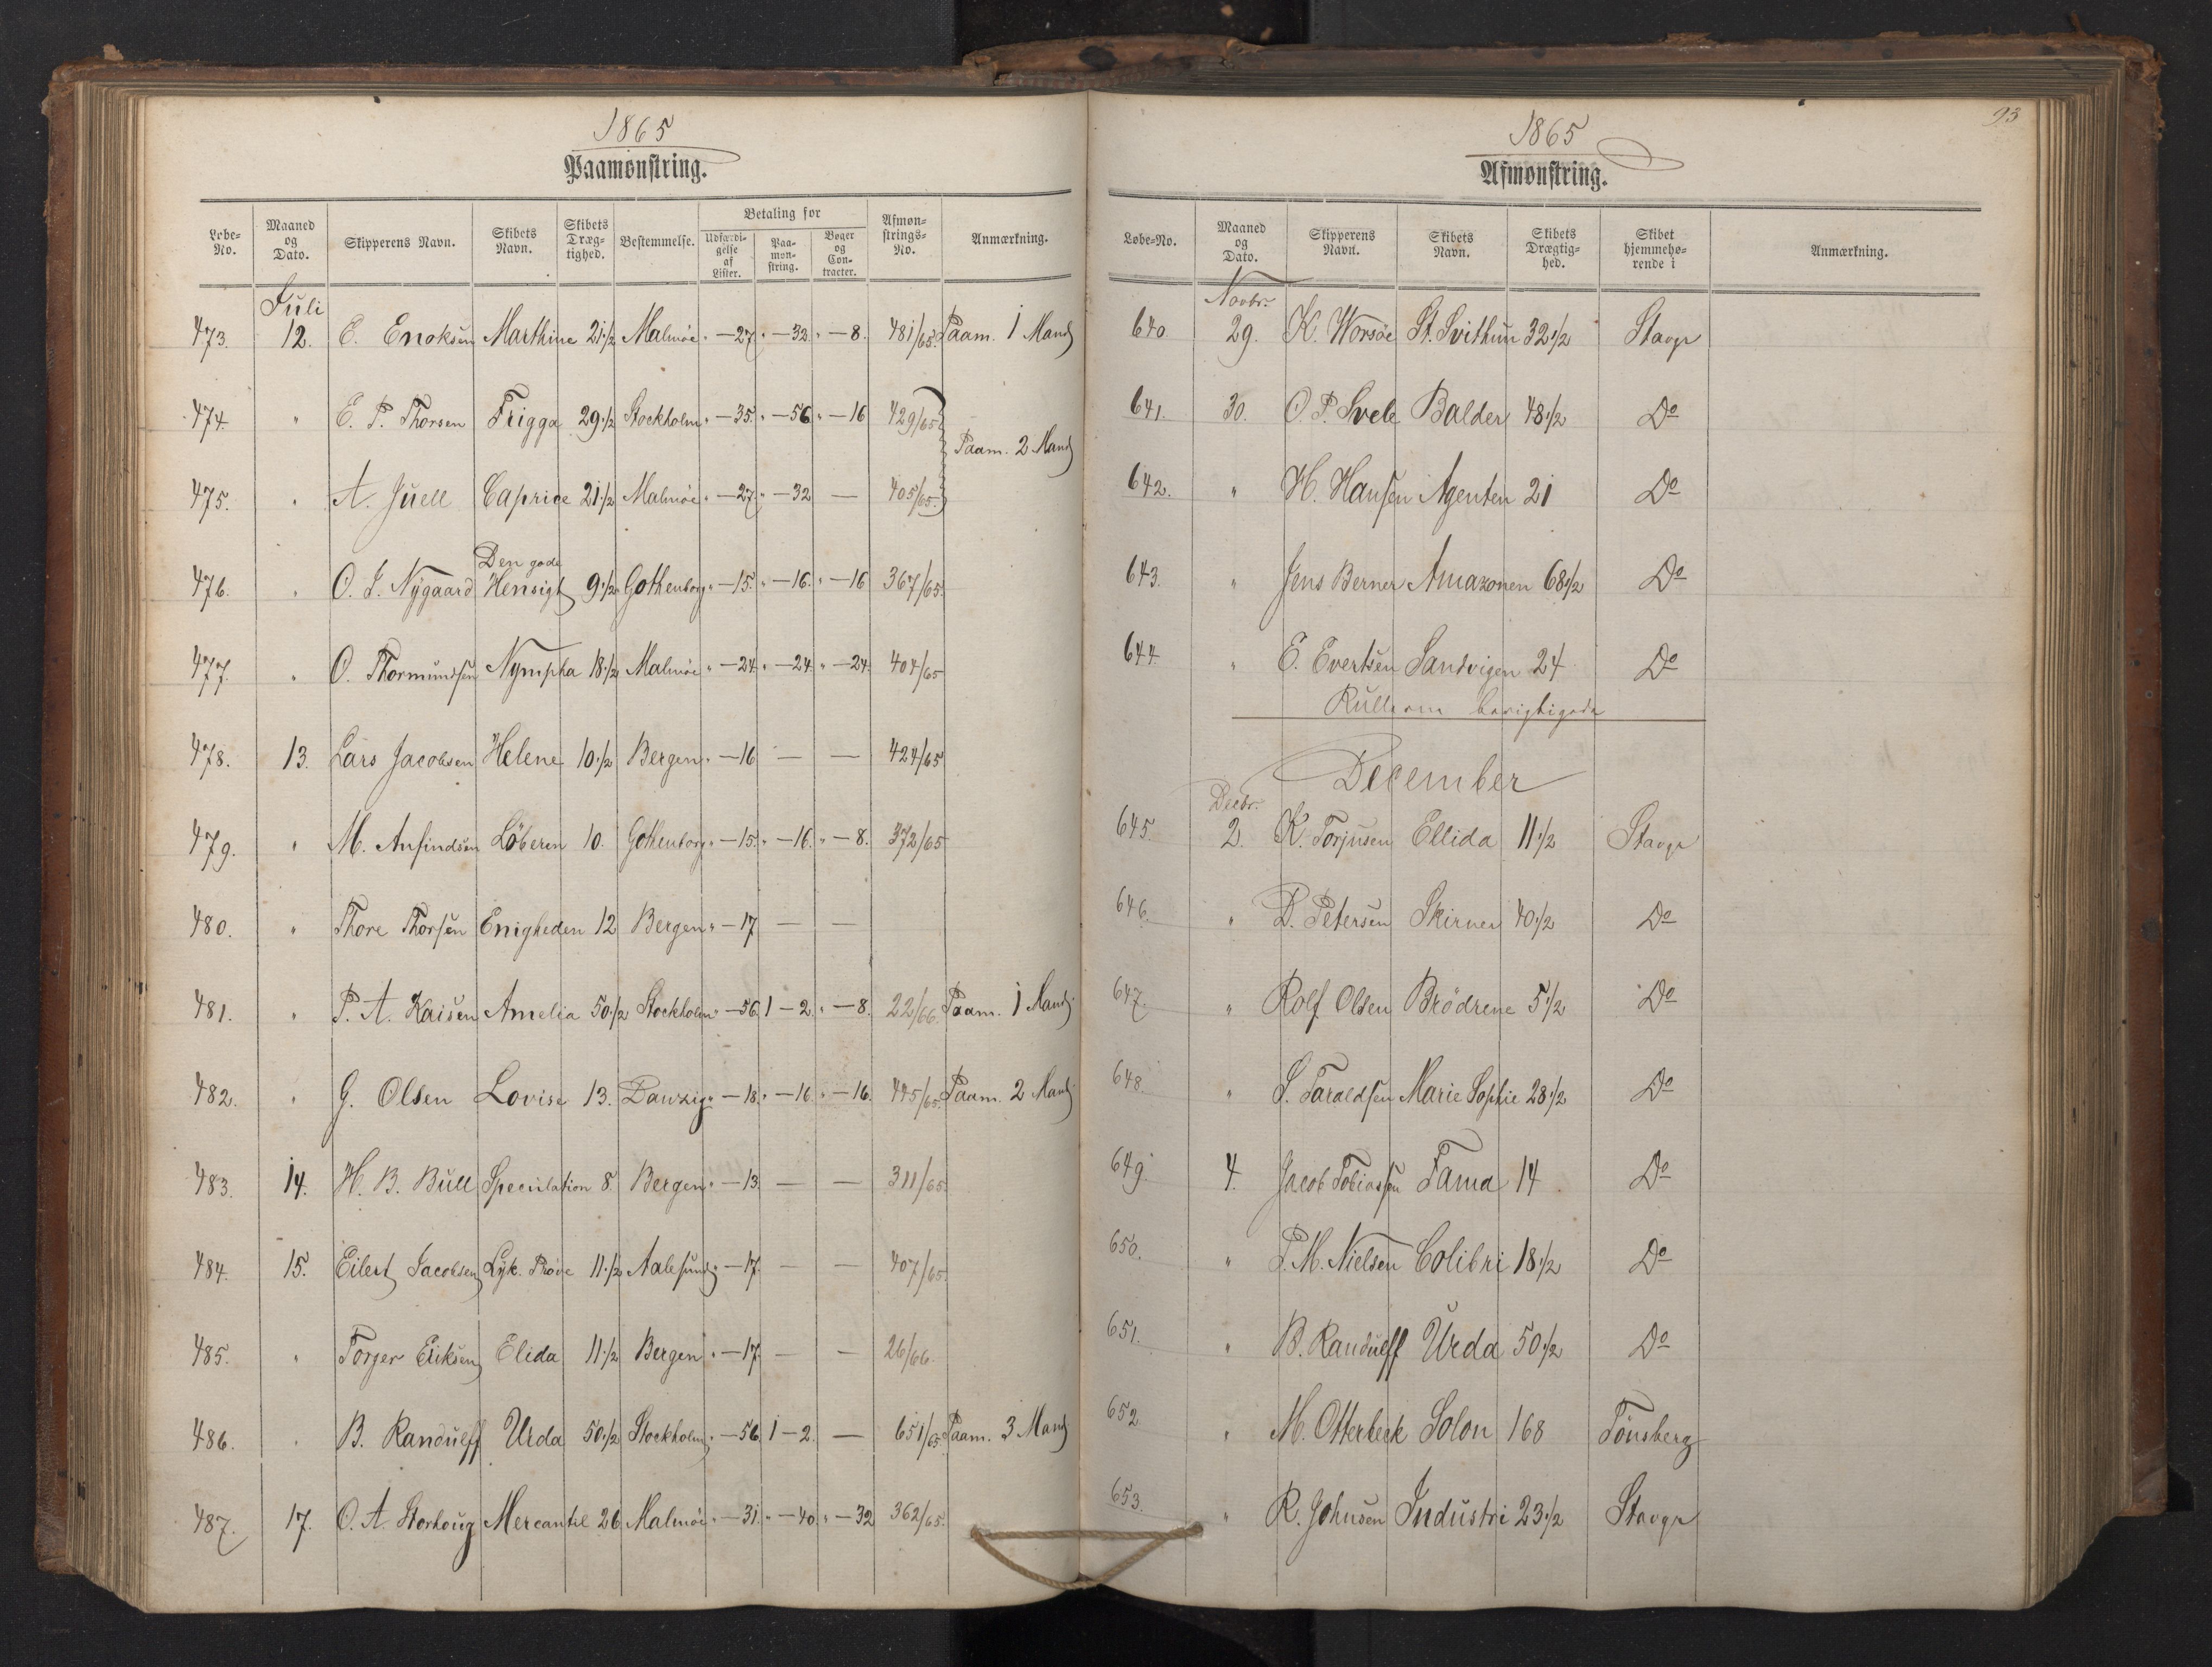 1865
Paamønstring.
Løbe-No. Maaned og Dato. Skipperens Navn. Skibets Navn. Skibets Dræg-tighed. Bestemmelse. Betaling for Udfærdi-gelse af Lister. Paa-møn-string. Bøger og Con-tracter. Afmøn-strings-No. Anmærkning.
Juli
473. 12. E. Enoksen Marthine 21 1/2 Malmöe " — 27 " — 32 " — 8. 481/65. Paam. 1 Mand
474. " E. P. Thorsen Frigga 29 1/2 Stockholm " — 35. " — 56 " — 16 429/65
Paam. 2 Mand
475. " A. Juell Caprice 21 1/2 Malmöe " — 27 " — 32 — 405/65.
Den gode
476. " O. J. Nygaard Hensigt 9 1/2 Gothenborg " — 15. " — 16. " — 16 367/65.
477. " O. Thormundsen Nympha 18 1/2 Malmöe " — 24. " — 24. " — 24. 404/65
478. 13. Lars Jacobsen Helene 10 1/2 Bergen " — 16 — — 424/65
479. " M. Anfindsen Löberen 10. Gothenborg " — 15. " — 16. " — 8. 372/65
480. " Thore Thorsen Enigheden 12 Bergen " — 17 — —
481. " P. A. Kaisen Amelia 50 1/2 Stockholm " — 56 1 — 2. " — 8. 22/66. Paam. 1 Mand
482. " G. Olsen Lovise 13. Danzig " — 18. " — 16. " — 16. 445/65. Paam. 2 Mand
483. 14. H. B. Bull Speculation 8. Bergen " — 13. — — 311/65.
484. 15. Eilert Jacobsen Lyk. Pröve 11 1/2 Aalesund " — 17. — — 407/65.
485. " Torger Eriksen Elida 11 1/2 Bergen " — 17. — — 26/66.
486. " B. Randulff Urda 50 1/2 Stockholm " — 56. 1 — 2. — 651/65. Paam. 3 Mand
487. 17. O. A. Storhoug Mercantil 26 Malmöe " — 31. " — 40. " — 32 362/65.
93
1865
Afmønstring.
Løbe-No. Maaned og Dato. Skipperens Navn. Skibets Navn. Skibets Drægtig-hed. Skibet hjemmehø-rende i Anmærkning.
Novbr.
640. 29. K. Worsöe St. Svithun 32 1/2 Stavgr
641. 30. O. P. Svele Balder 48 1/2 Do
642. " H. Hansen Agenten 21 Do
643. " Jens Berner Amazonen 68 1/2 Do
644. " E. Evertsen Sandvigen 24 Do
Rullerne berigtigede
December
Decbr.
645. 2. K. Torjusen Ellida 11 1/2 Stavgr
646. " D. Petersen Skirner 40 1/2 Do
647. " Rolf Olsen Brödrene 5 1/2 Do
648. " S. Taraldsen Marie Sophie 28 1/2 Do
649. 4. Jacob Tobiassen Fama 14 Do
650. " P. M. Nielsen Colibri 18 1/2 Do
651. " B. Randulff Urda 50 1/2 Do
652. " M. Otterbeck Solon 168 Tönsberg
653. " R. Johnsen Industri 23 1/2 Stavgr